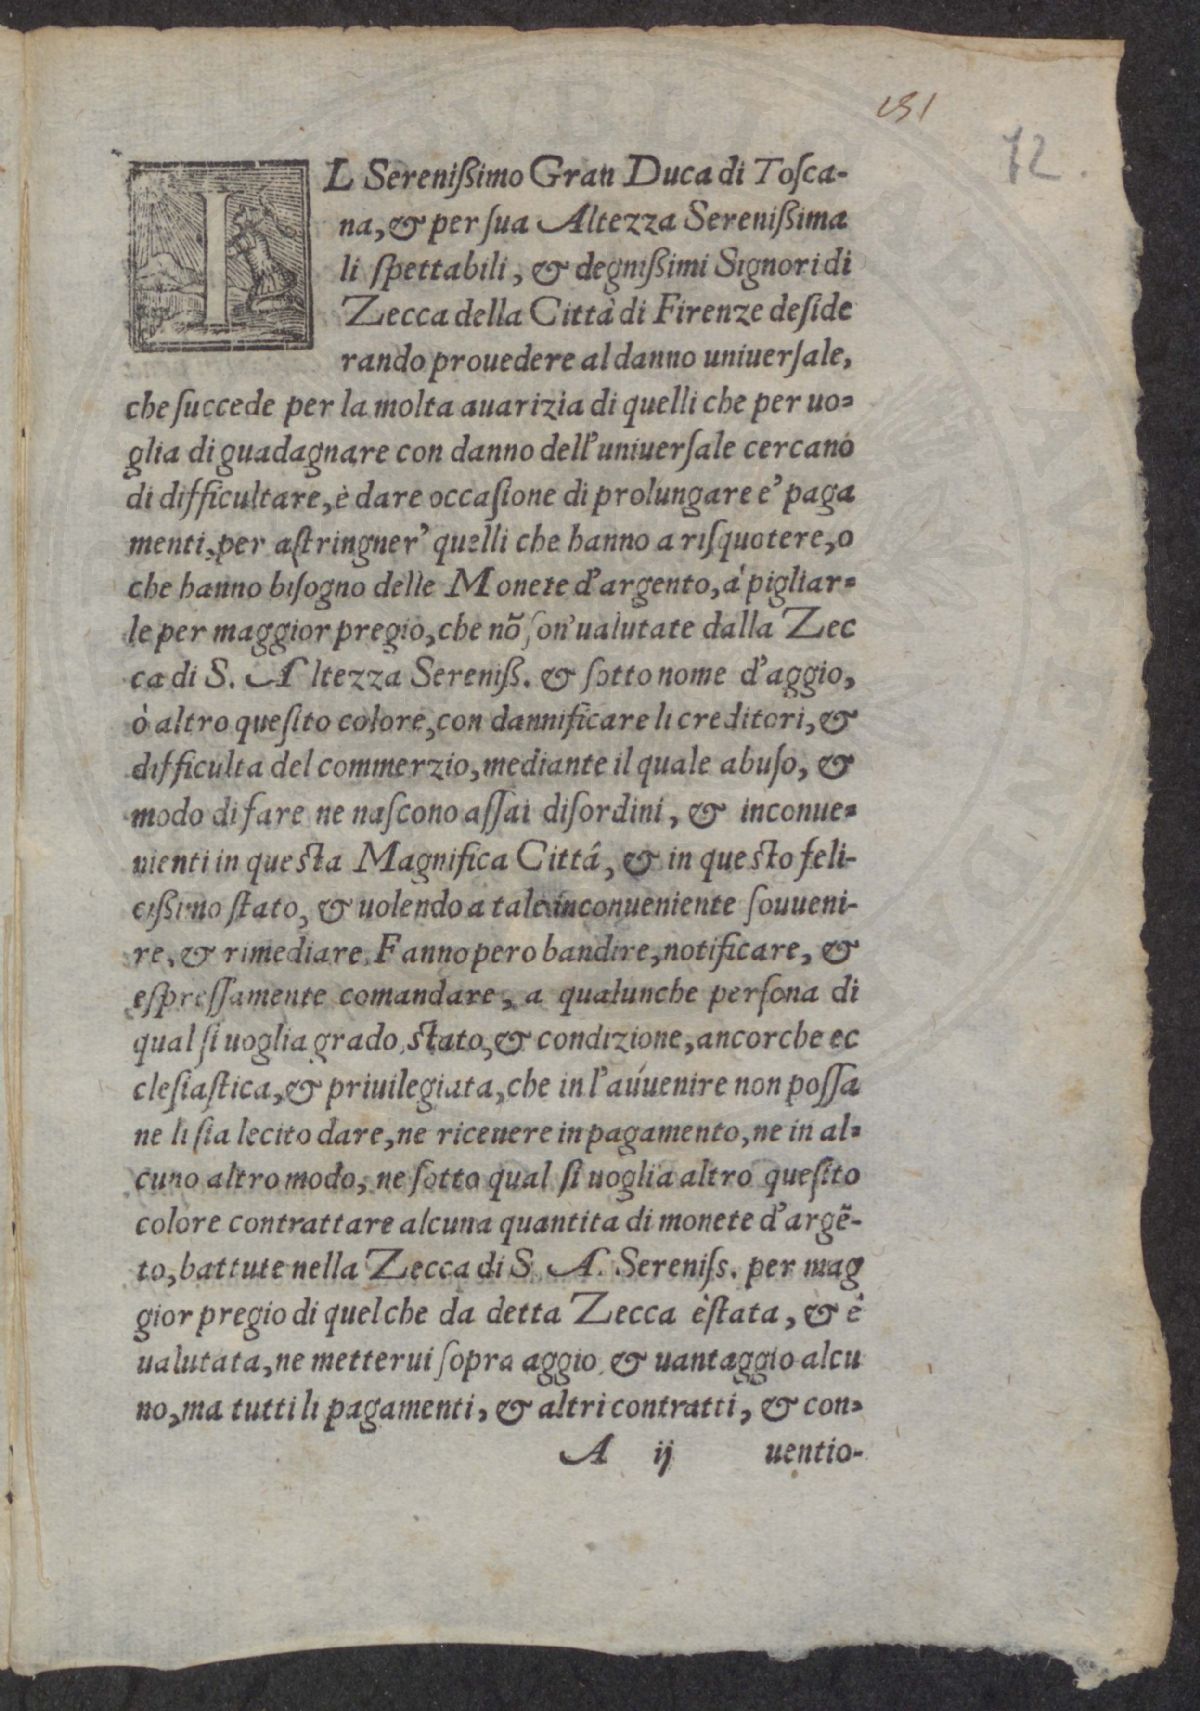 151
72.
IL Sereniſsimo Gran Duca di Toſca-
na, & per ſua Altezza Sereniſsima
li ſpettabili, & degniſsimi Signori di
Zecca della Città di Firenze deſide
rando prouedere al danno uniuerſale,
che ſuccede per la molta auarizia di quelli che per uo-
glia di guadagnare con danno dell'uniuerſale cercano
di difficultare, è dare occaſione di prolungare e' paga
menti, per aſtringner' quelli che hanno a riſquotere, o
che hanno biſogno delle Monete d'argento, à pigliar-
le per maggior pregio, che nõ ſon' ualutate dalla Zec
ca di S. Altezza Sereniſs. & ſotto nome d'aggio,
ò altro queſito colore, con dannificare li creditori, &
difficulta del commerzio, mediante il quale abuſo, &
modo di fare ne naſcono aſſai diſordini, & inconue-
nienti in queſta Magnifica Cittá, & in queſto feli-
ciſsimo ſtato, & uolendo a tale inconueniente ſouueni-
re, & rimediare. Fanno pero bandire, notificare, &
eſpreſſamente comandare, a qualunche perſona di
qual ſi uoglia grado, ſtato, & condizione, ancorche ec
cleſiaſtica, & priuilegiata, che in l'auuenire non poſſa
ne li ſia lecito dare, ne riceuere in pagamento, ne in al-
cuno altro modo, ne ſotto qual ſi uoglia altro queſito
colore contrattare alcuna quantita di monete d'argẽ-
to, battute nella Zecca di S. A. Sereniſs. per mag
gior pregio di quel che da detta Zecca è ſtata, & è
ualutata, ne metterui ſopra aggio & uantaggio alcu
no, ma tutti li pagamenti, & altri contratti, & con-
A ij uentio-